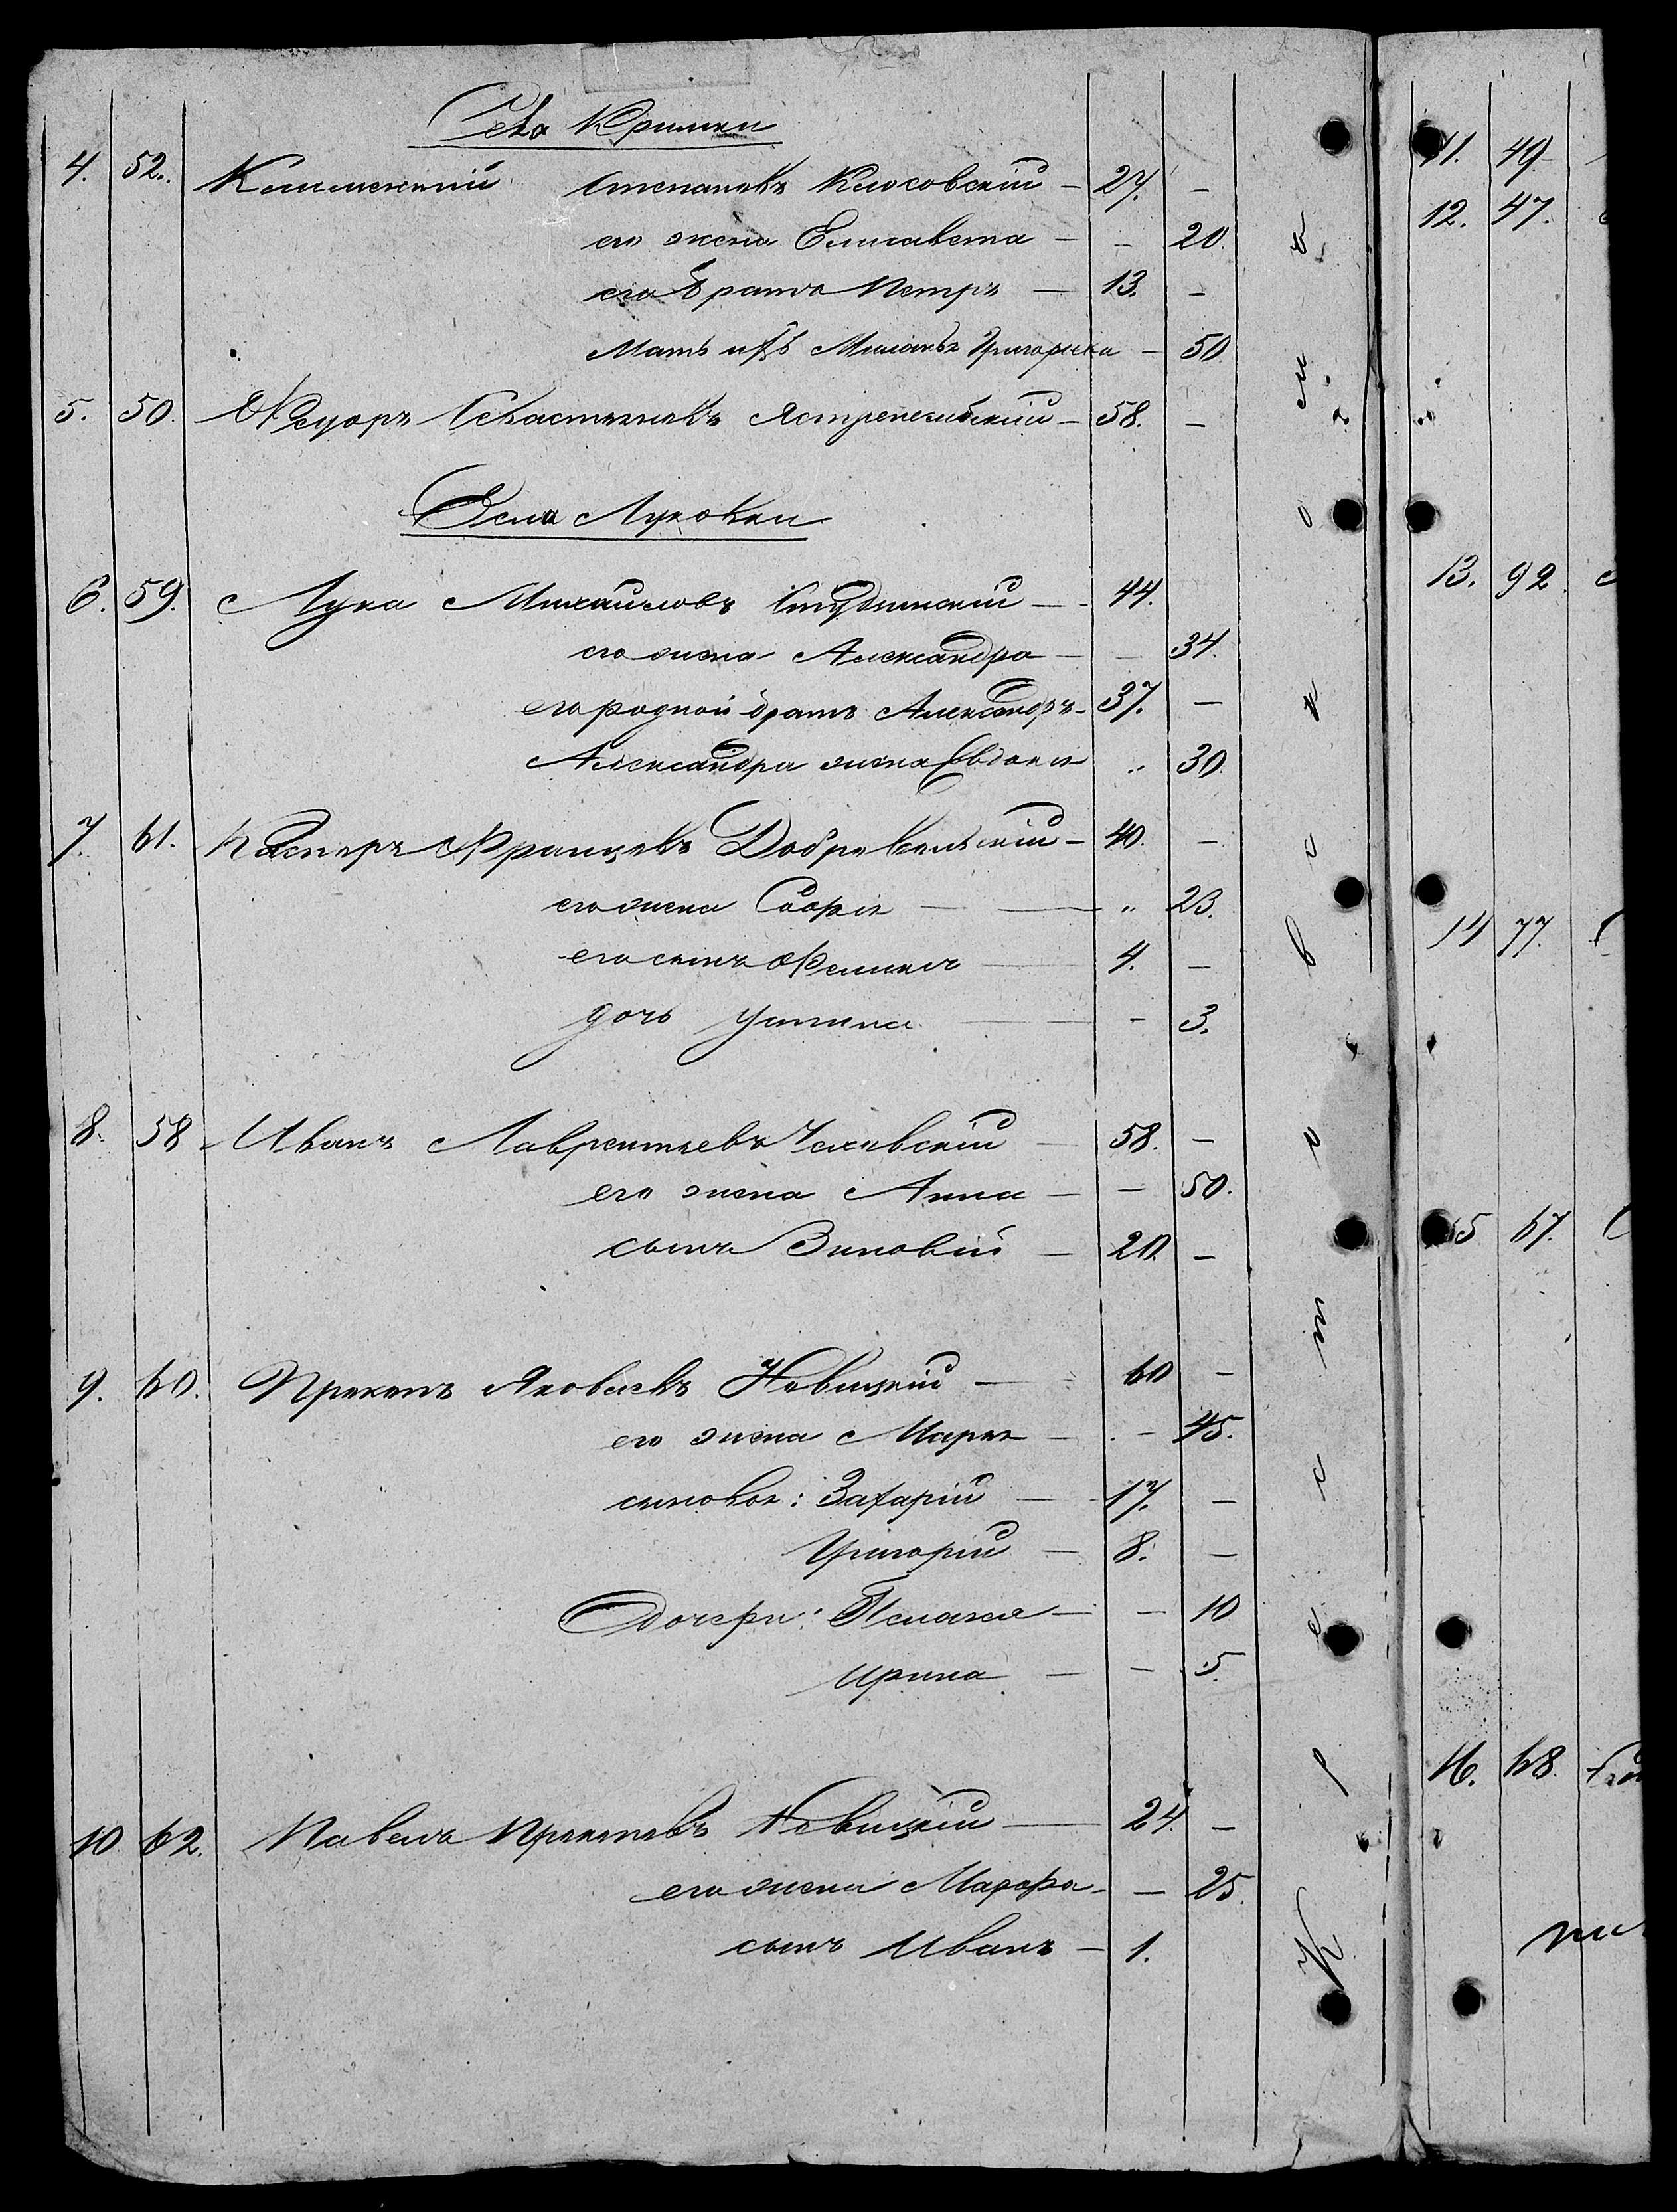 Села Кримки
4. 52. Климентій Степановъ Клосовскій — 27. —
его жена Елисавета — — 20.
его братъ Петръ — 13. —
Мать ихъ Григорьева — 50
5. 50. Федоръ Севастьяновъ — 58. —
Села Луковки
6. 59. Лука Михайловъ — 44.
его жена Александра — — 34.
его родной братъ Александръ — 37. —
Александра жена Евдокия „ 30.
7. 61. Касперъ Францовъ Добровольскій — 40. —
его жена Софія — „ 23.
его сынъ Феликсъ — 4. —
дочь Устина — - 3.
8. 58 Иванъ Лаврентьевъ Чеховскій — 58. —
его жена Анна — — 50.
сынъ Зиновій — 20. —
9. 60. Прокопъ Яковлевъ Новицкій — 60 —
его жена Марья — - 45.
сыновья: Захарій — 17. —
Григорій — 8. —
Дочери: Пелагея — — 10
Ирина — — 5.
10 62. Павелъ Прокоповъ Новицкій — 24. —
его жена Марфа — — 25.
сынъ Иванъ — 1.
11. 49.
12. 47.
13. 92
14 77.
15 67.
16. 68.